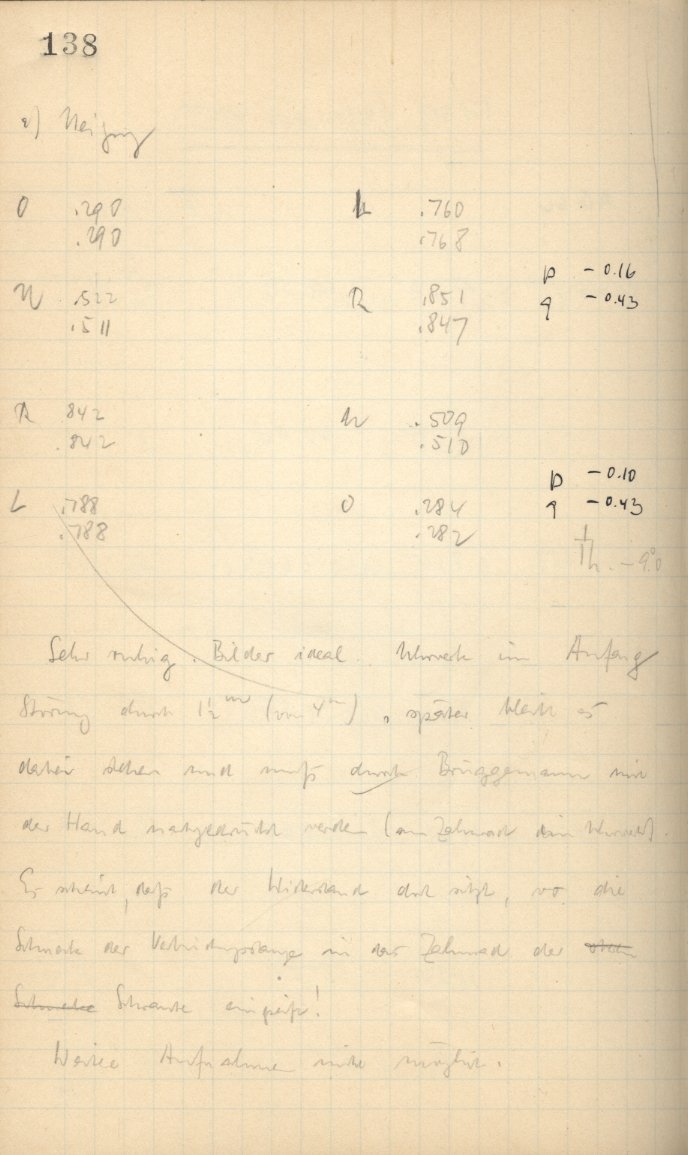 138
e) Neigung
O .290 L .760
.290 .768
p - 0.16
U .522 R .851 q - 0.43
.511 .847
R .842 U .509
.842 .510
p - 0.10
L .788 O .284 q - 0.43
.788 .282
Th. - 9.0
Sehr ruhig. Bilder ideal. Uhrwerk im Anfang
Störung durch 1½ (von 4), später bleibt es
dabei stehen und muß durch Brüggemann mit
der Hand nachgedrückt werden (am Zahnrad Uhrwerk).
Es scheint, daß der Widerstand dort sitzt, wo die
Schnecke der Verbindungsstange in das Zahnrad der
Schnecke Schraube eingreift!
Weitere Aufnahme nicht möglich.